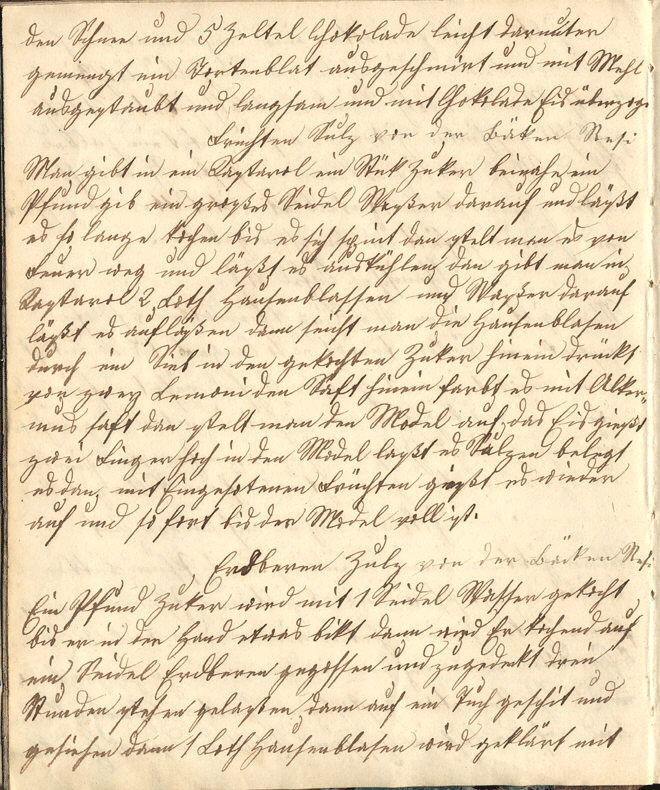 den Schnee und 5 Zeltel Chokolade leicht darunter
gemengt ein Tortenblat ausgeschmirt und mit Mehl
ausgestaubt und langsam und mit Chokolade Eis überzoge
Früchten Sulz von der Bäken Resi
Man gibt in ein Kastarol ein Stük Zuker beinahe ein
Pfund gib ein großes Seidel Waßer darauf und läßt
es so lange kochen bis es sich spint dan stelt man es von
Feuer weg und läßt es auskühlen, dan gibt man in
Kastarol 2 Loth Hausenblassen und Waßer darauf
läßt es auflößen dann seiht man die Hausenblasen
durch ein Sieb in den gekochten Zuker hinein drückt
von zwey Lemoni den Saft hinein farbt es mit Alker=
mus saft dan stelt man den Model auf das Eis gießt
zwei Finger hoch in den Model laßt es Sulzen belegt
es dan mit Eingesotenen Früchten gießt es wieder
auf und so fort bis der Model voll ist.
Erdberen Zulz von der Bäcken Resi
Ein Pfund Zuker wird mit 1 Seidel Wasser gekocht
bis er in der Hand etwas bikt dann wird Er kochend auf
ein Seidel Erdberen gegossen und zugedekt drei
Stunden stehen gelaßen, dann auf ein Tuch geschit und
gesiehen dann 1 Loth Hausenblasen wird geklärt mit